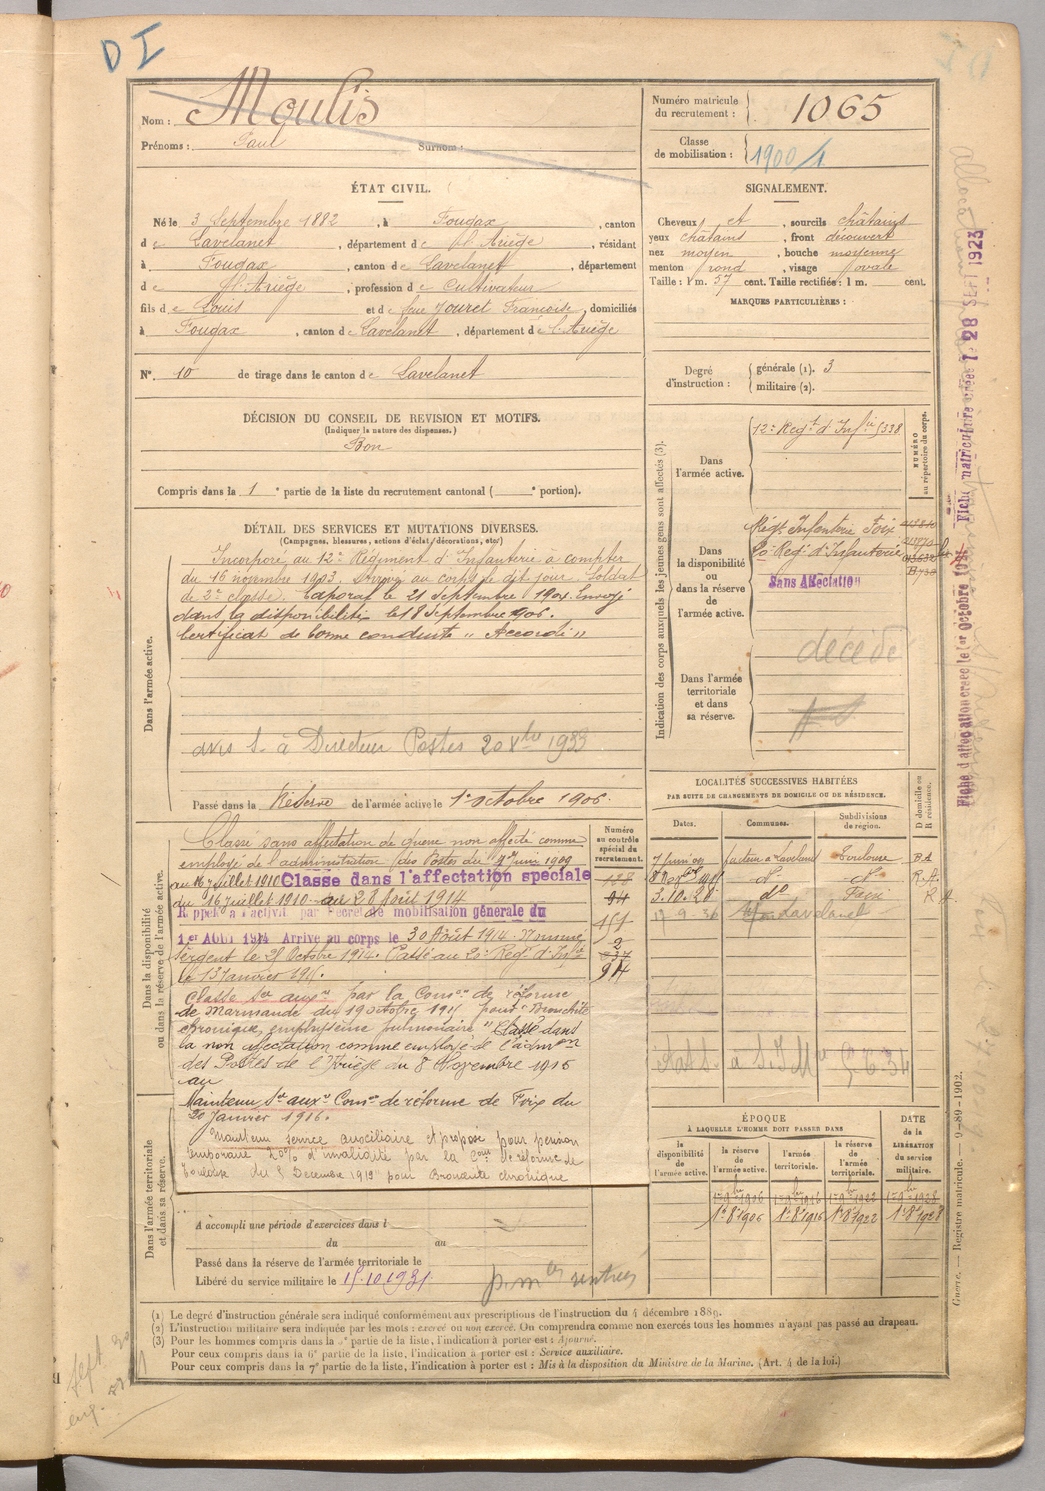 D I
Nom : Moulis
Prénoms : Paul Surnom :
Numéro matricule du recrutement : 1065
Classe de mobilisation : 1900/1
ÉTAT CIVIL.
Né le 3 Septembre 1882, à Fougax, canton
de Lavelanet, département de l'Ariège, résidant
à Fougax, canton de Lavelanet, département
de l'Ariège, profession de Cultivateur
fils de Louis et de feue Jouret Françoise, domiciliés
à Fougax, canton de Lavelanet, département de l'Ariège
N° 10 de tirage dans le canton de Lavelanet
SIGNALEMENT.
Cheveux et, sourcils châtains
yeux châtains, front découvert
nez moyen, bouche moyenne
menton rond, visage ovale
Taille : 1 m. 57 cent. Taille rectifiée : 1 m. cent.
MARQUES PARTICULIÈRES :
Degré d'instruction : générale (1). 3
militaire (2).
DÉCISION DU CONSEIL DE REVISION ET MOTIFS.
(Indiquer la nature des dispenses.)
Bon
Compris dans la 1e partie de la liste du recrutement cantonal ( e portion).
DÉTAIL DES SERVICES ET MUTATIONS DIVERSES.
(Campagnes, blessures, actions d'éclat, décorations, etc.)
Dans l'armée active.
Incorporé au 12e Régiment d'Infanterie à compter
du 16 novembre 1903. Arrivé au corps le dit jour. Soldat
de 2e classe. Caporal le 21 Septembre 1904. Envoyé
dans la disponibilité le 18 Septembre 1906.
Certificat de bonne conduite "Accordé"
avis L. à Directeur Postes 20 Xbre 1933
Passé dans la Réserve de l'armée active le 1er octobre 1906.
Indication des corps auxquels les jeunes gens sont affectés (3).
NUMÉRO au répertoire du corps.
Dans l'armée active.
12e Régt d'Infie 5338
Dans la disponibilité ou dans la réserve de l'armée active.
Régt Infanterie Foix
20e Regt d'Infanterie
Sans Affectation
Dans l'armée territoriale et dans sa réserve.
décédé
Dans la disponibilité ou dans la réserve de l'armée active.
Numéro au contrôle spécial du recrutement.
Classé sans affectation de guerre non affecté comme
employé de l'administration des Postes du juin 1909
au 16 juillet 1910 Classé dans l'affectation spéciale
du 16 juillet 1910 au 28 Août 1914
Rappelé à l'activité par décret de mobilisation générale du
1er AOUT 1914 Arrivé au corps le 30 Août 1914. Nommé
Sergent le 21 Octobre 1914. Passé au 20e Régt d'Infie
le 13 Janvier 1915.
Classé Sce auxre par la Comon de réforme
de Marmande du 19 octobre 1915 pour "Bronchite
chronique, emphysème pulmonaire" Classé dans
la non affectation comme employé de l'admon
des Postes de l'Ariège du 8 Novembre 1915
au
Maintenu Sce auxre Comon de réforme de Foix du
20 Janvier 1916.
Maintenu service auxiliaire et proposé pour pension
temporaire 20% d'invalidité par la Com de réforme de
Toulouse du 5 Décembre 1919 pour Bronchite chronique
Dans l'armée territoriale et dans sa réserve.
A accompli une période d'exercices dans l
du au
Passé dans la réserve de l'armée territoriale le
Libéré du service militaire le 15.10.1931
p. mles rentrées
LOCALITÉS SUCCESSIVES HABITÉES
PAR SUITE DE CHANGEMENTS DE DOMICILE OU DE RÉSIDENCE.
Dates. Communes. Subdivisions de région. D domicile ou R résidence.
facteur à Lavelanet Toulouse
do do
3.10.28 do Foix R
17-9-30 Lavelanet
ÉPOQUE
À LAQUELLE L'HOMME DOIT PASSER DANS
la disponibilité de l'armée active. la réserve de l'armée active. l'armée territoriale. la réserve de l'armée territoriale.
DATE de la LIBÉRATION du service militaire.
1er 9bre 1906 1er 9bre 1916 1er 9bre 1922 1er 9bre 1928
1er 8e 1906 1er 8e 1916 1er 8e 1922 1er 8e 1928
Fiche matriculaire créée le 28 SEPT 1923
Fiche d'affectation créée le 1er Octobre
Guerre. — Registre matricule. — 9-89-1902.
(1) Le degré d'instruction générale sera indiqué conformément aux prescriptions de l'instruction du 4 décembre 1889.
(2) L'instruction militaire sera indiquée par les mots : exercé ou non exercé. On comprendra comme non exercés tous les hommes n'ayant pas passé au drapeau.
(3) Pour les hommes compris dans la 5e partie de la liste, l'indication à porter est : Ajourné.
Pour ceux compris dans la 6e partie de la liste, l'indication à porter est : Service auxiliaire.
Pour ceux compris dans la 7e partie de la liste, l'indication à porter est : Mis à la disposition du Ministre de la Marine. (Art. 4 de la loi.)